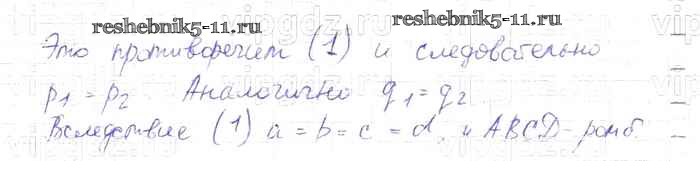 reshebnik5-11.ru reshebnik5-11.ru
Это противоречит (1) и следовательно
p1 = p2 Аналогично q1 = q2
Вследствие (1) a = b = c = d, и ABCD - ромб.